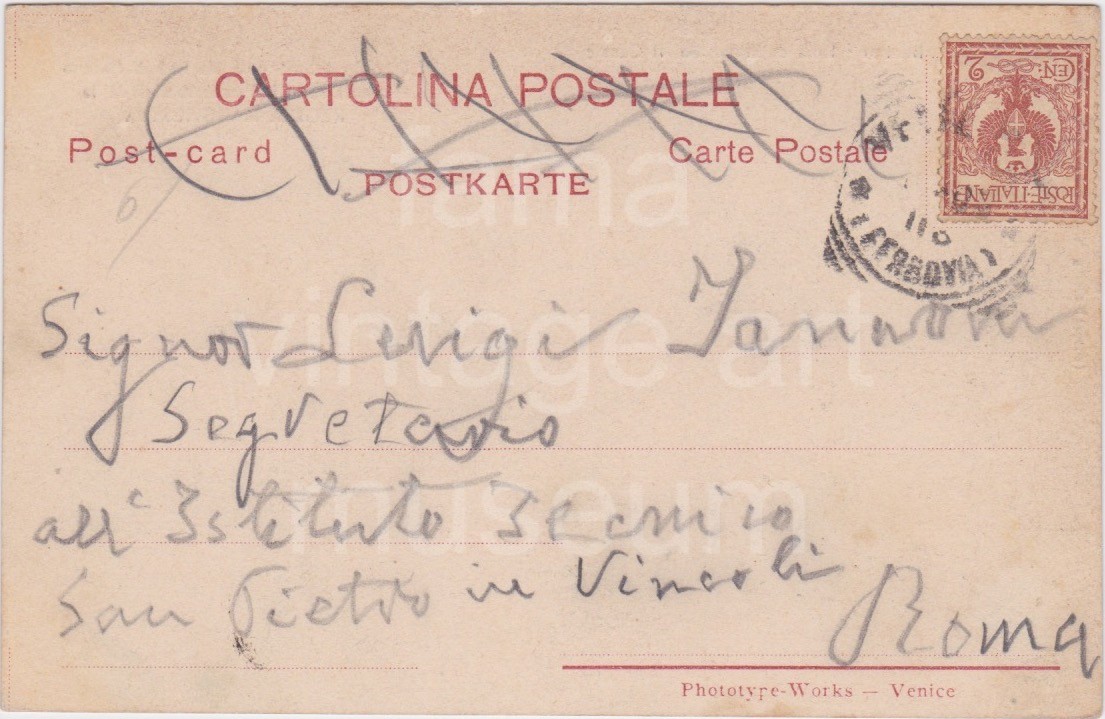 CARTOLINA POSTALE
Post-card
Carte Postale
POSTKARTE
2
CEN:
POSTE·ITALIANE
(FERROVIA)
fama
vintage art
museum
Signor Luigi
Segretario
all' Istituto Tecnico
San Pietro in Vincoli
Roma
Phototype-Works — Venice